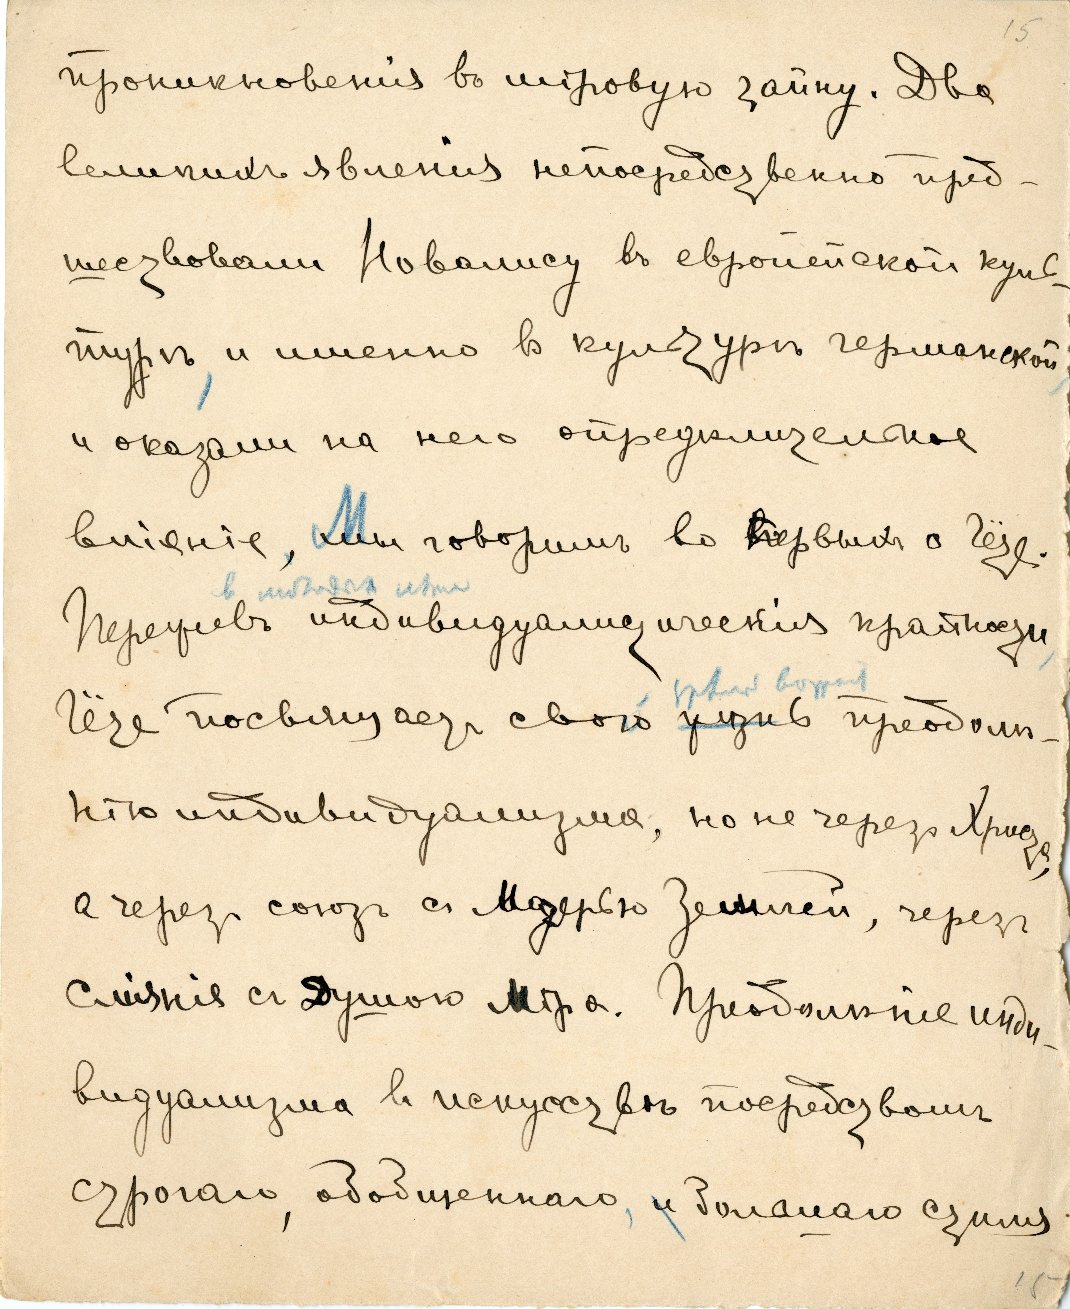 15
проникновенія въ міровую тайну. Два
великихъ явленія непосредственно пред-
шествовали Новалису въ европейской куль-
турѣ, и именно въ культурѣ германской,
и оказали на него опредѣлительное
вліяніе, Мы говоримъ во первыхъ о Гёте.
в молодые
Переживъ индивидуалистическія крайности,
зрѣлый возраст
Гёте посвящаетъ свою жизнь преодолѣ-
нію индивидуализма, но не черезъ Христа,
а черезъ союзъ съ Матерью Землей, черезъ
сліянія съ Душою Міра. Преодолѣніе инди-
видуализма въ искусствѣ посредствомъ
строгаго, обобщеннаго, и большаго стиля
15